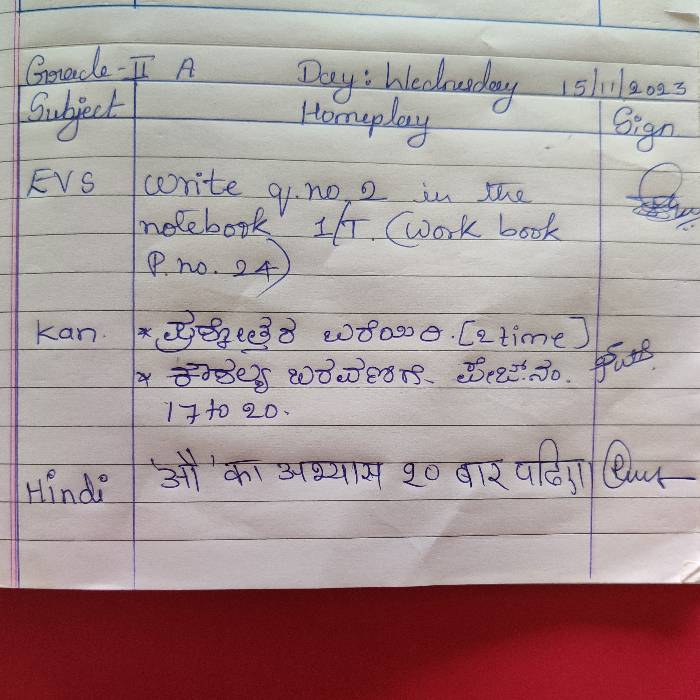 Grade-II A Day: Wednesday 15/11/2023
Subject Homeplay Sign
EVS write q.no.2 in the
notebook 1/T. (Work book
P.no. 24)
Kan. * ಪ್ರಶ್ನೋತ್ತರ ಬರೆಯಿರಿ. [2 time]
* ಕೌಶಲ್ಯ ಬರವಣಿಗೆ ಪೇಜ್.ನಂ.
17 to 20.
Hindi 'औ' का अभ्यास २० बार पढिए